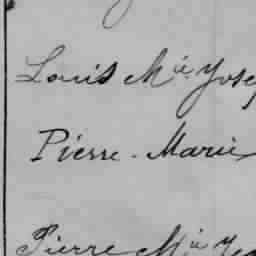 Louis Mie Josep
Pierre - Marie
Pierre Mie